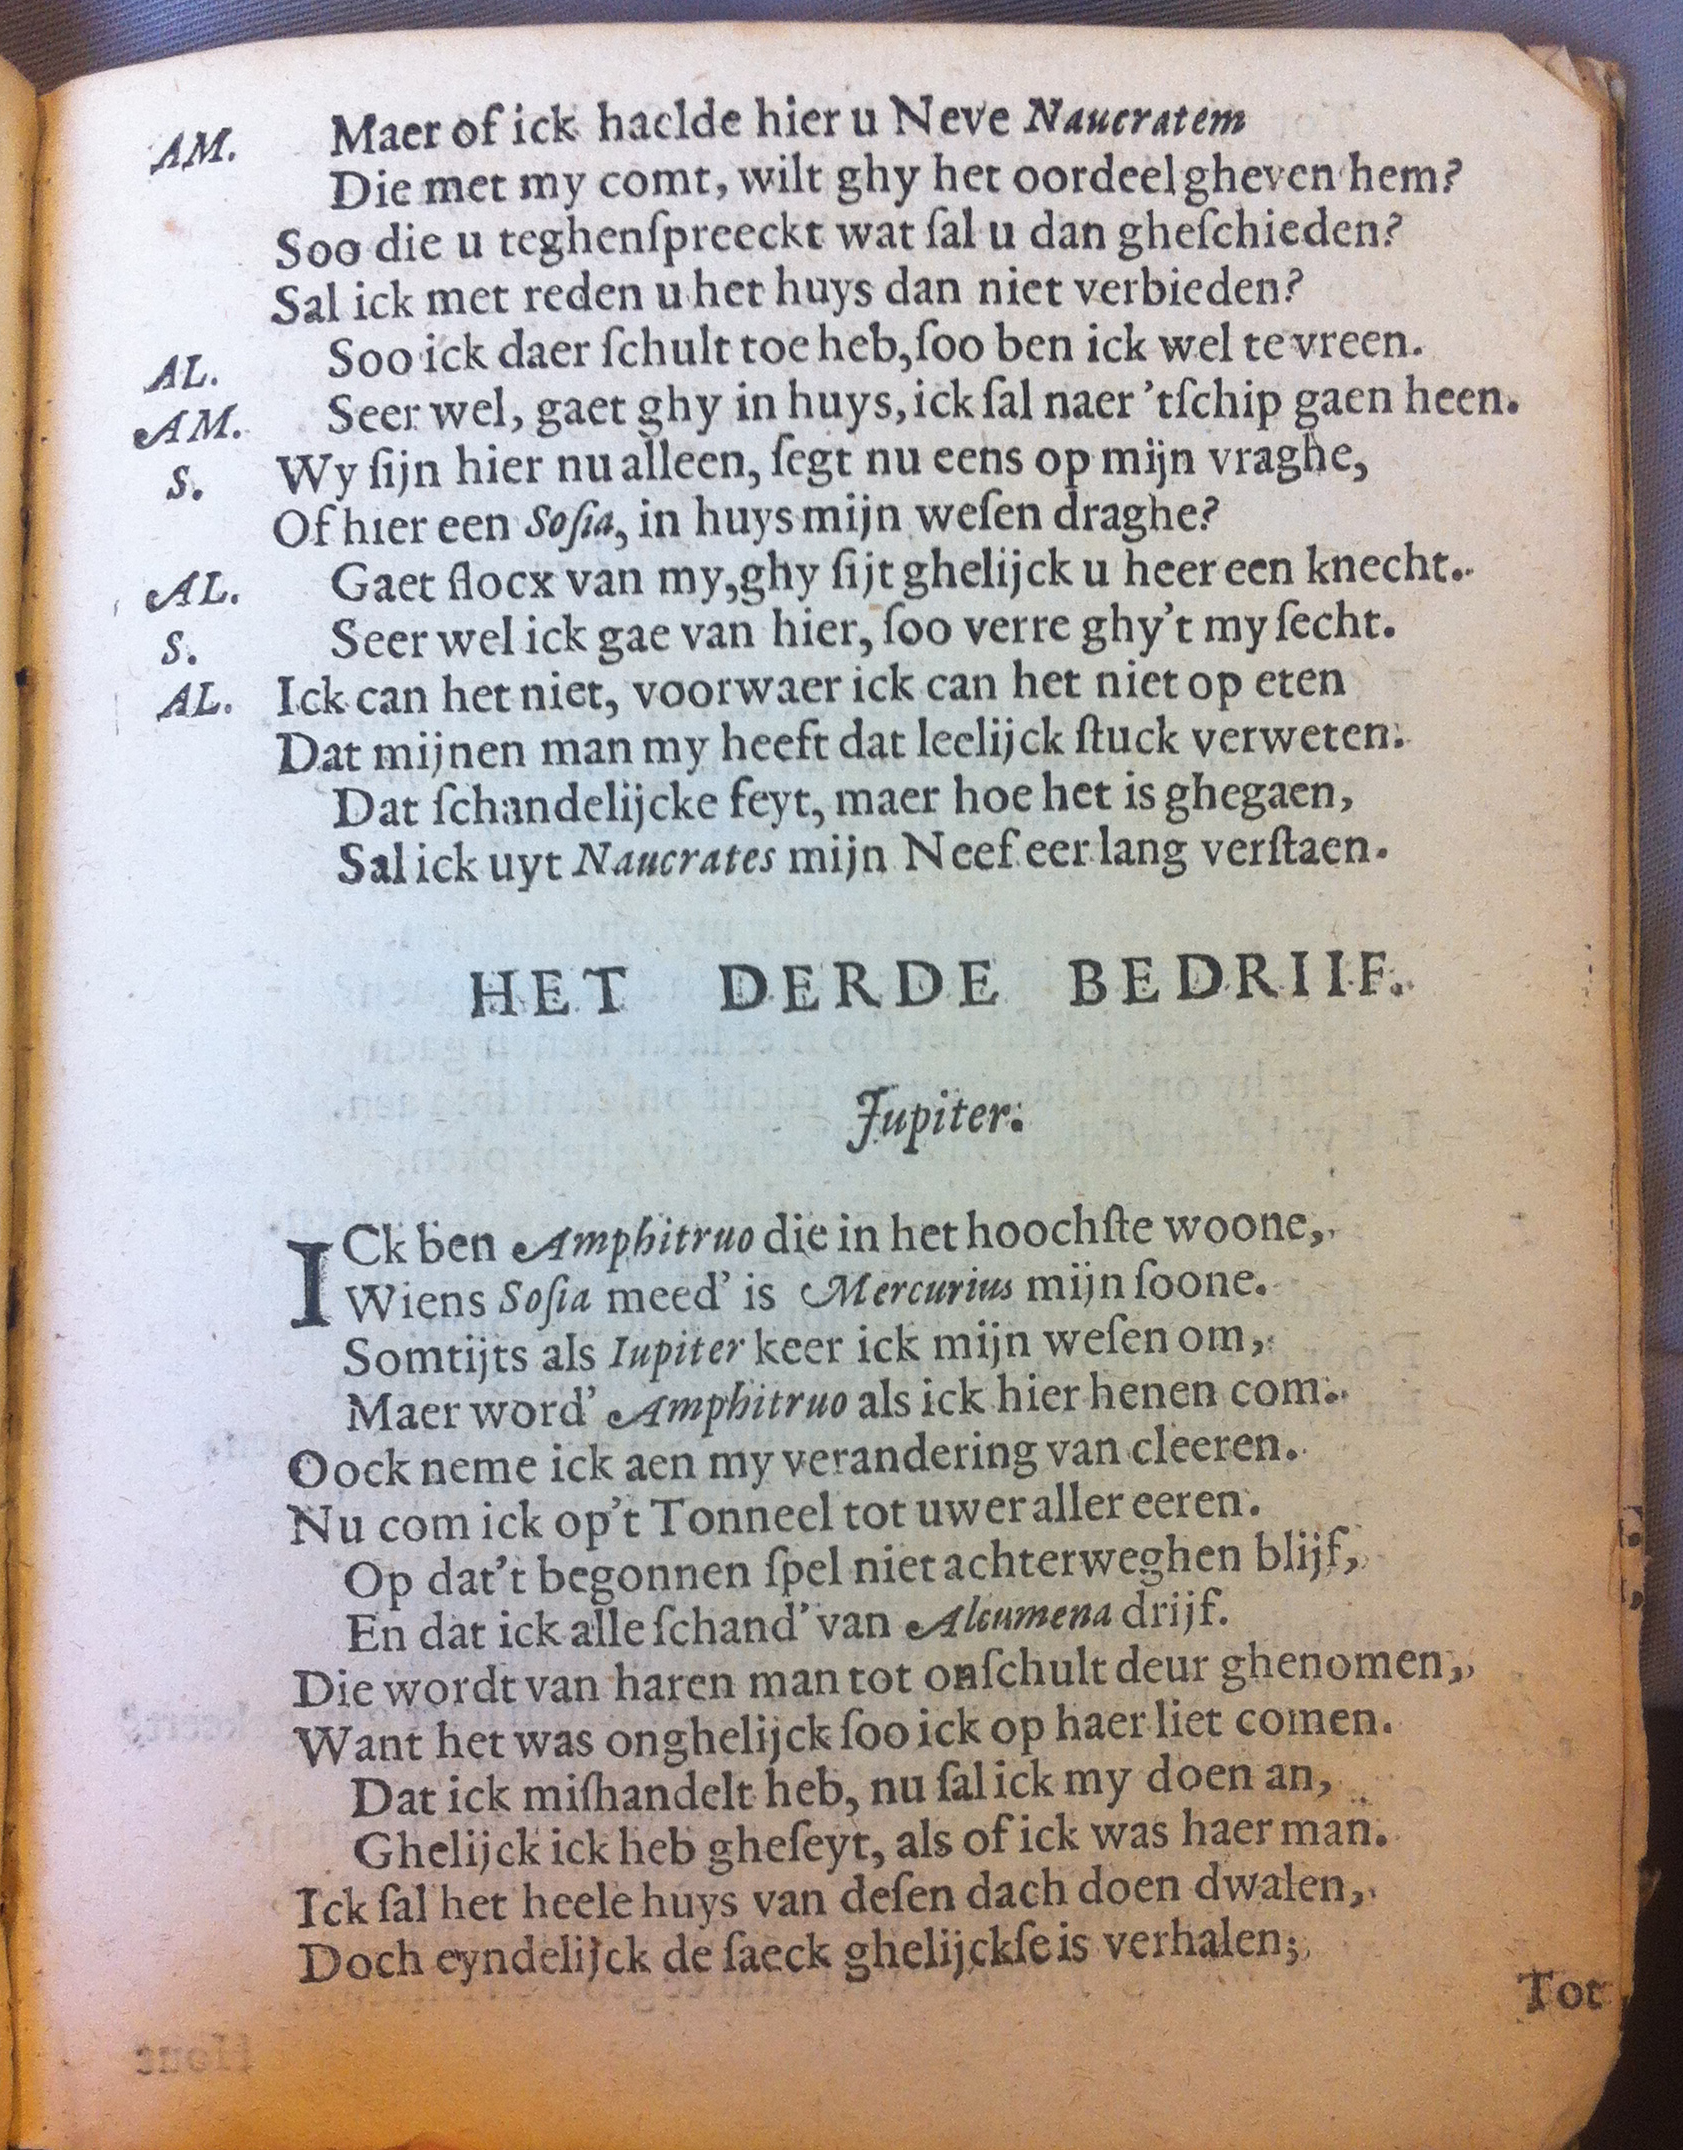 AM. Maer of ick haelde hier u Neve Naucratem
Die met my comt, wilt ghy het oordeel gheven hem?
Soo die u teghenſpreeckt wat ſal u dan gheſchieden?
Sal ick met reden u het huys dan niet verbieden?
AL. Soo ick daer ſchult toe heb, ſoo ben ick wel te vreen.
AM. Seer wel, gaet ghy in huys, ick ſal naer 'tſchip gaen heen.
S. Wy ſijn hier nu alleen, ſegt nu eens op mijn vraghe,
Of hier een Soſia, in huys mijn weſen draghe?
AL. Gaet flocx van my, ghy ſijt ghelijck u heer een knecht.
S. Seer wel ick gae van hier, ſoo verre ghy't my ſecht.
AL. Ick can het niet, voorwaer ick can het niet op eten
Dat mijnen man my heeft dat leelijck ſtuck verweten.
Dat ſchandelijcke feyt, maer hoe het is ghegaen,
Sal ick uyt Naucrates mijn Neef eer lang verſtaen.
HET DERDE BEDRIIF.
Jupiter.
ICk ben Amphitruo die in het hoochſte woone,
Wiens Soſia meed' is Mercurius mijn ſoone.
Somtijts als Iupiter keer ick mijn weſen om,
Maer word' Amphitruo als ick hier henen com.
Oock neme ick aen my verandering van cleeren.
Nu com ick op't Tonneel tot uwer aller eeren.
Op dat't begonnen ſpel niet achterweghen blijf,
En dat ick alle ſchand' van Alcumena drijf.
Die wordt van haren man tot onſchult deur ghenomen,
Want het was onghelijck ſoo ick op haer liet comen.
Dat ick miſhandelt heb, nu ſal ick my doen an,
Ghelijck ick heb gheſeyt, als of ick was haer man.
Ick ſal het heele huys van deſen dach doen dwalen,
Doch eyndelijck de ſaeck ghelijckſe is verhalen;
Tot